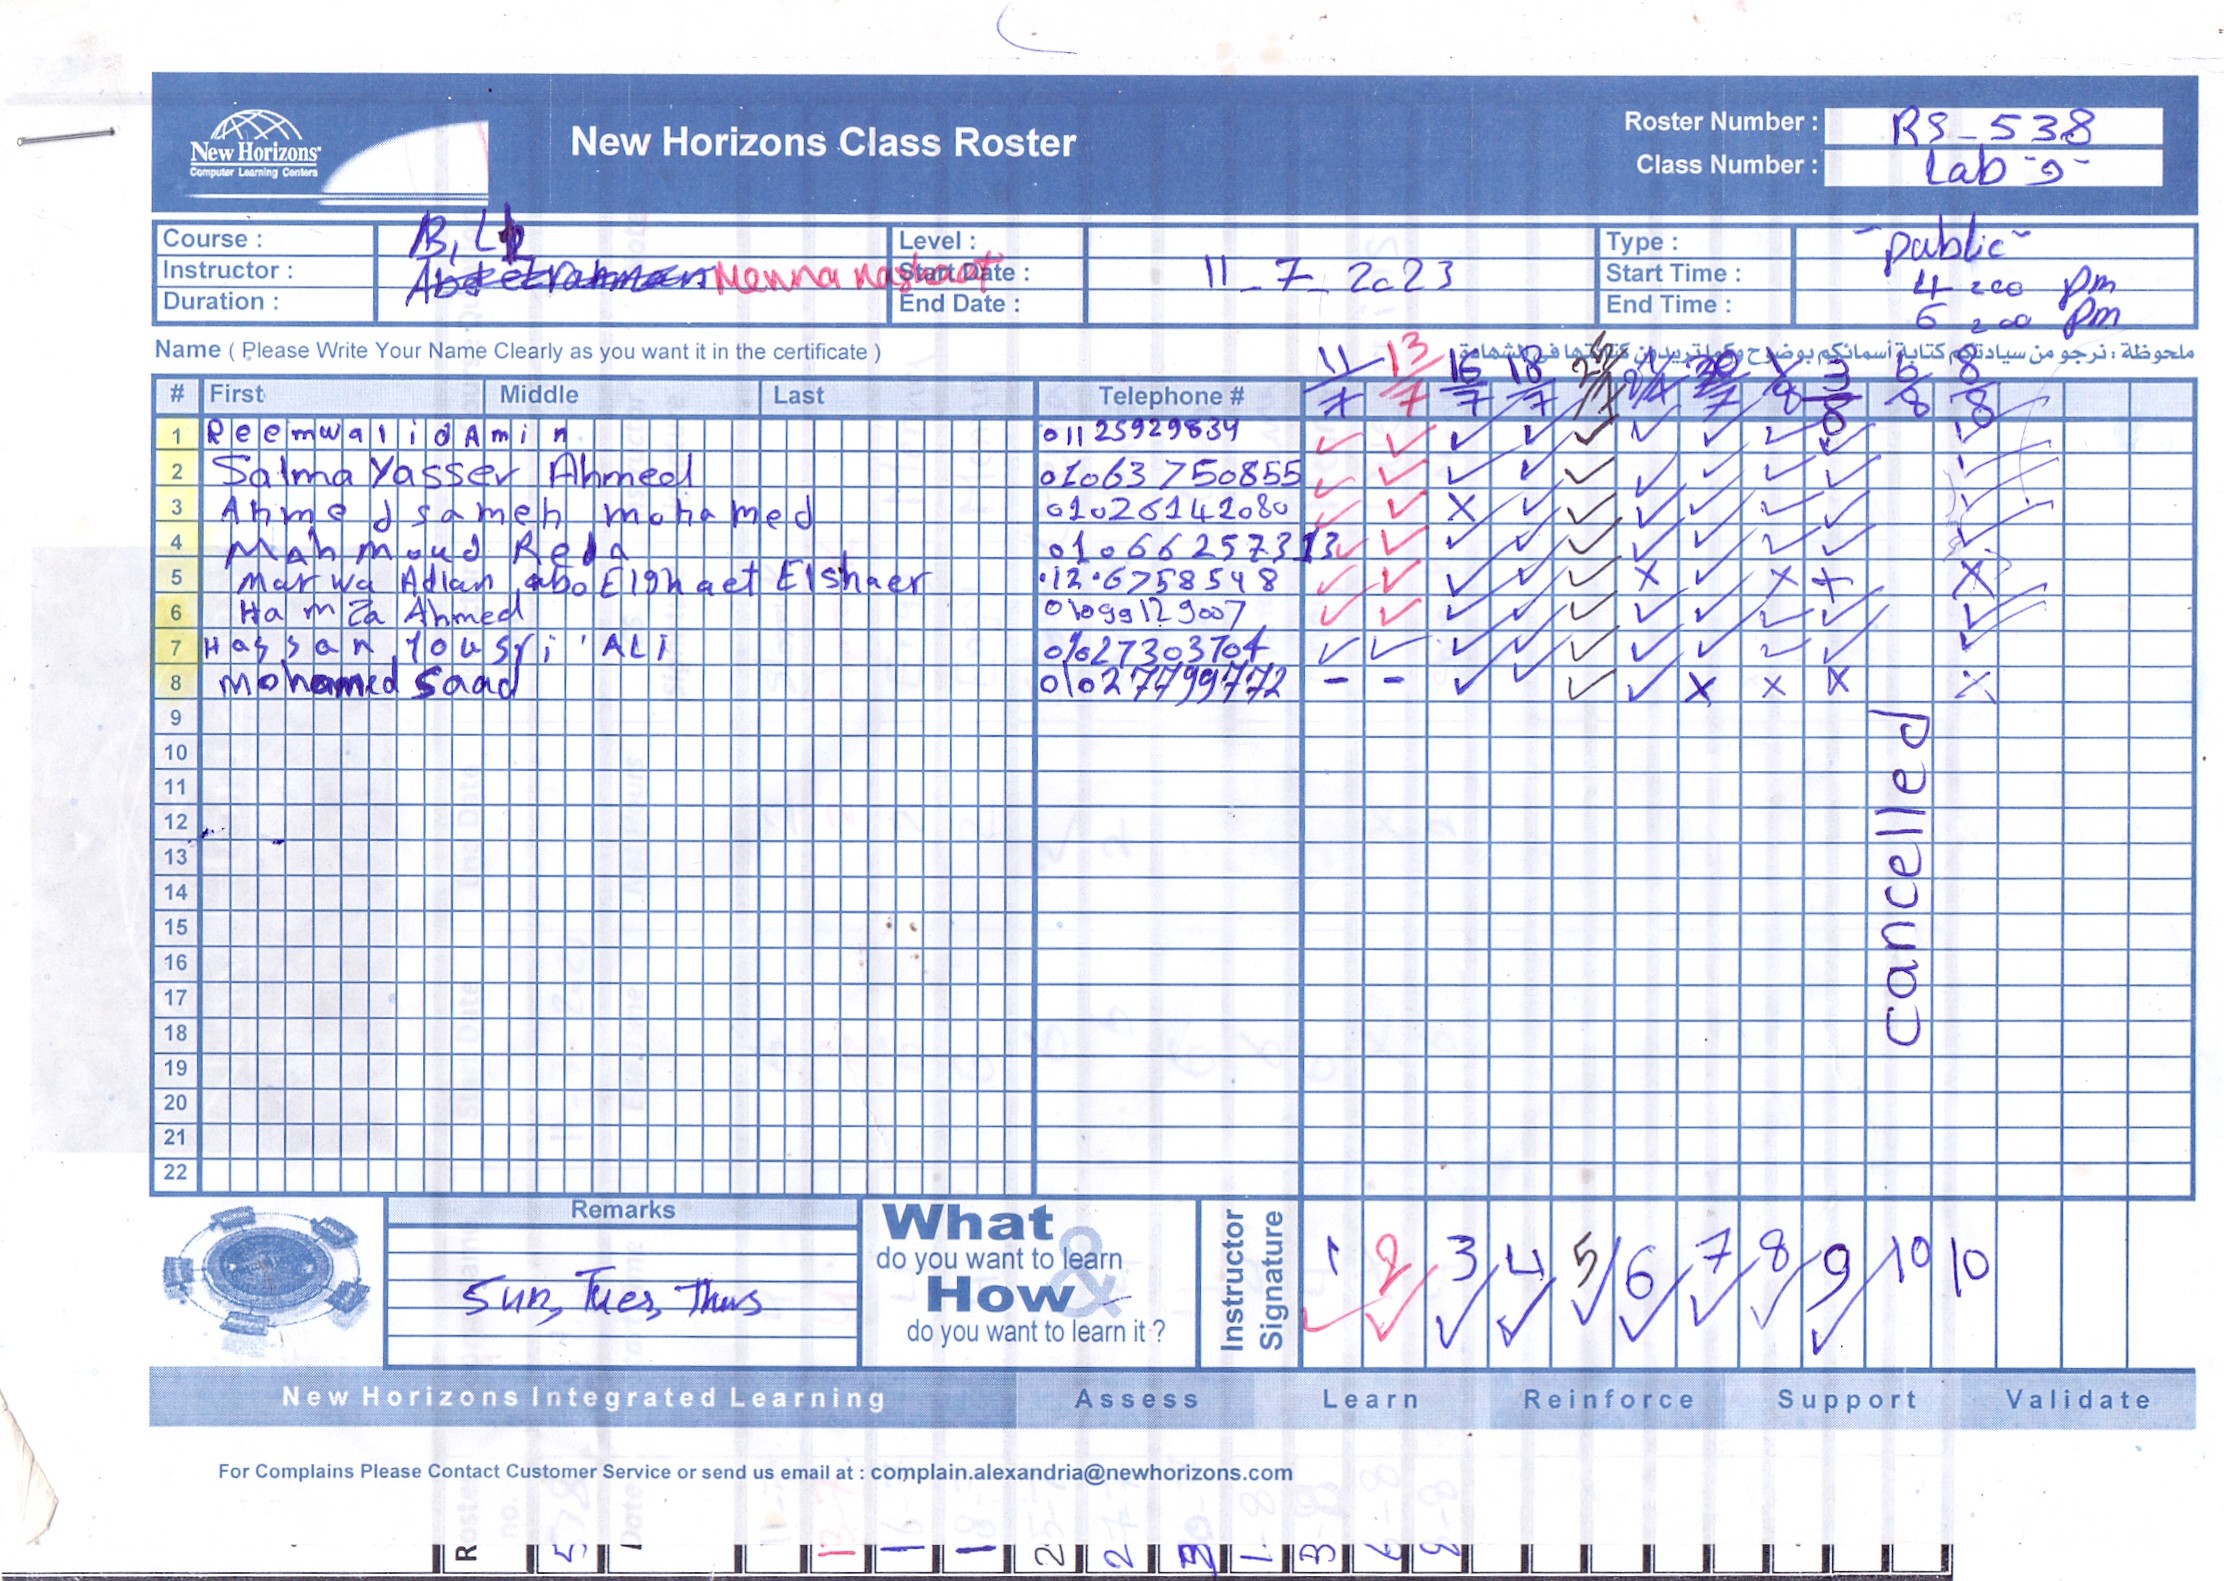 New Horizons
Computer Learning Centers
New Horizons Class Roster
Roster Number : RS-538
Class Number : Lab "9"
Course : B, L1
Level :
Type : "public"
Instructor : Abdelrahman Menna nashaat
Start Date : 11-7-2023
Start Time : 4:00 pm
Duration :
End Date :
End Time : 6:00 pm
Name ( Please Write Your Name Clearly as you want it in the certificate )
ملحوظة : نرجو من سيادتكم كتابة أسمائكم بوضوح وكما تريدون كتابتها في الشهادة
# First Middle Last Telephone # 11/7 13/7 16/7 18/7 25/7 27/7 30/7 1/8 3/8 6/8 8/8
1 Reem walid Amin 01125929834 ✓ ✓ ✓ ✓ ✓ ✓ ✓ ✓ ✓ ✓
2 Salma Yasser Ahmed 01063750855 ✓ ✓ ✓ ✓ ✓ ✓ ✓ ✓ ✓ ✓
3 Ahmed sameh mohamed 01026142080 ✓ ✓ X ✓ ✓ ✓ ✓ ✓ ✓ ✓
4 Mahmoud Reda ✓ ✓ ✓ ✓ ✓ ✓ ✓ ✓ ✓ ✓
5 Marwa Adlan abo Elshaet Elshaer 01206758548 ✓ ✓ ✓ ✓ ✓ X ✓ X X X
6 Hamza Ahmed 01099129007 ✓ ✓ ✓ ✓ ✓ ✓ ✓ ✓ ✓ ✓
7 Hassan Yousri ALi 01027303704 ✓ ✓ ✓ ✓ ✓ ✓ ✓ ✓ ✓ ✓
8 Mohamed Saad 01027799772 - - ✓ ✓ ✓ ✓ X X X X
9
10
11
12
13
14
15
16
17
18
19
20
21
22
cancelled
Remarks
Sun, Tues, Thus
What
&
do you want to learn
How
do you want to learn it ?
Instructor
Signature
1 2 3 4 5 6 7 8 9 10 10
New Horizons Integrated Learning Assess Learn Reinforce Support Validate
For Complains Please Contact Customer Service or send us email at : complain.alexandria@newhorizons.com